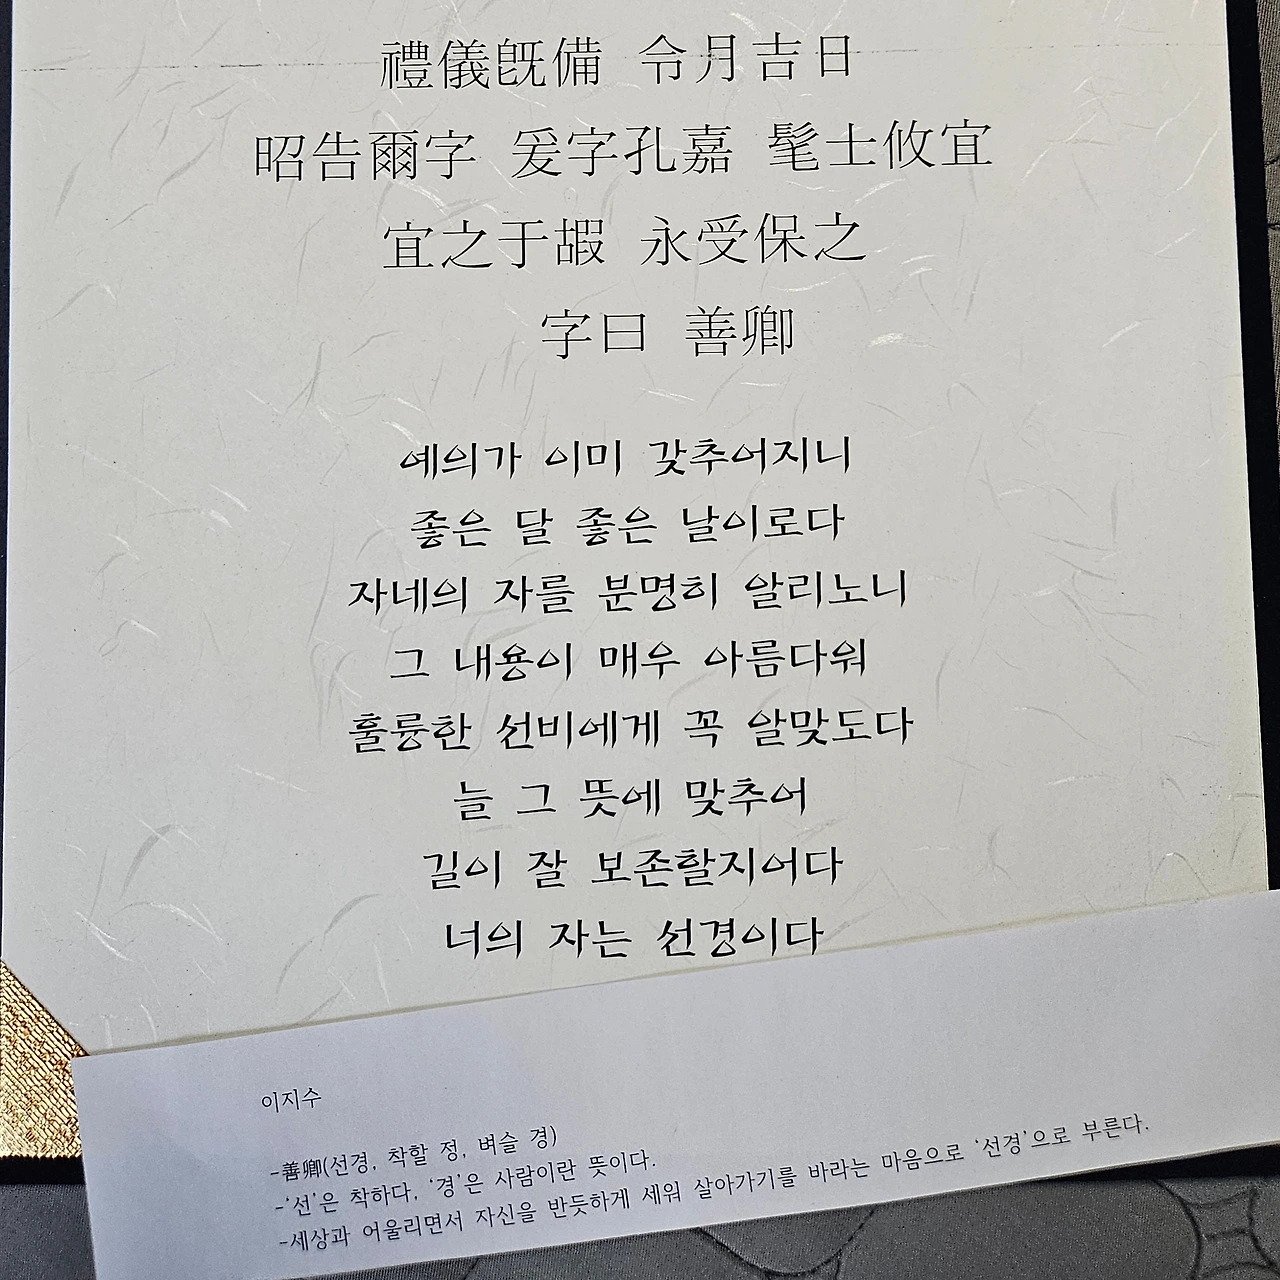 禮儀旣備 令月吉日
昭告爾字 爰字孔嘉 髦士攸宜
宜之于嘏 永受保之
字曰 善卿
예의가 이미 갖추어지니
좋은 달 좋은 날이로다
자네의 자를 분명히 알리노니
그 내용이 매우 아름다워
훌륭한 선비에게 꼭 알맞도다
늘 그 뜻에 맞추어
길이 잘 보존할지어다
너의 자는 선경이다
이지수
-善卿(선경, 착할 정, 벼슬 경)
-‘선’은 착하다, ‘경’은 사람이란 뜻이다.
-세상과 어울리면서 자신을 반듯하게 세워 살아가기를 바라는 마음으로 ‘선경’으로 부른다.